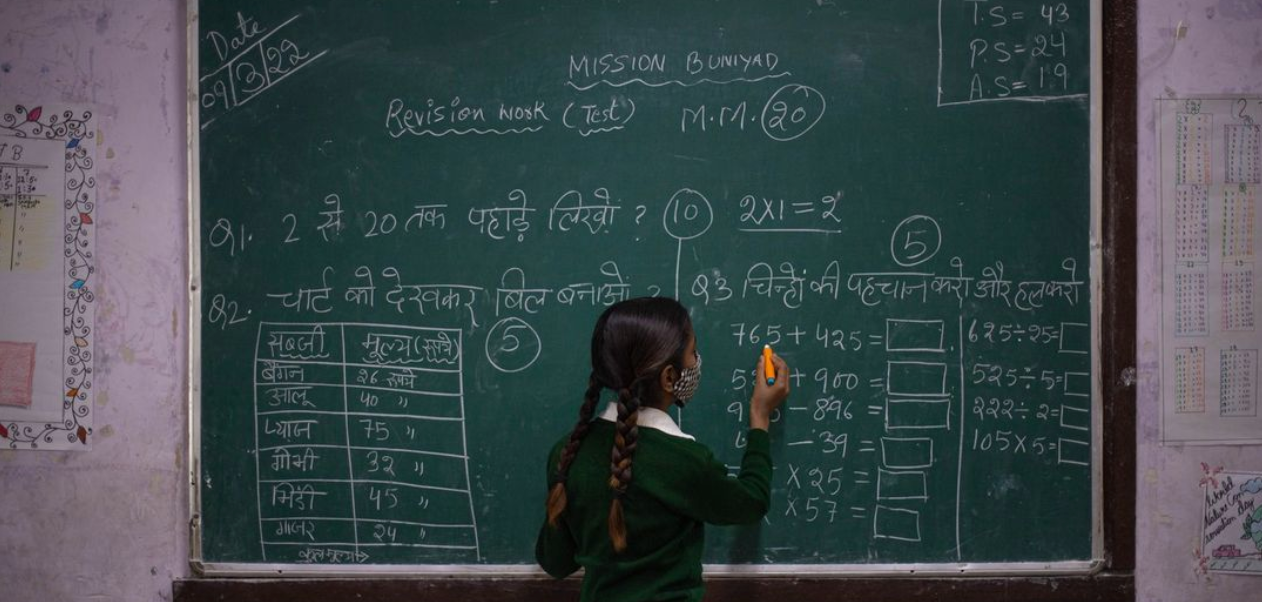 Date
09/3/22
T.S = 43
P.S = 24
A.S = 19
MISSION BUNIYAD
Revision work (Test) M.M. 20
Q1. 2 से 20 तक पहाड़े लिखो ? 10 2X1 = 2
Q2. चार्ट को देखकर बिल बनाओ ? 5
सब्जी मूल्य (रुपये)
बैंगन 26 रुपये
आलू 40 "
प्याज 75 "
गोभी 32 "
भिंडी 45 "
गाजर 24 "
कुल मूल्य →
5
Q3 चिन्हों की पहचान करो और हल करो
765 + 425 =
+ 900 =
- 896 =
- 39 =
X 25 =
X 57 =
625 ÷ 25 =
525 ÷ 5 =
222 ÷ 2 =
105 X 5 =
World
Nature
day